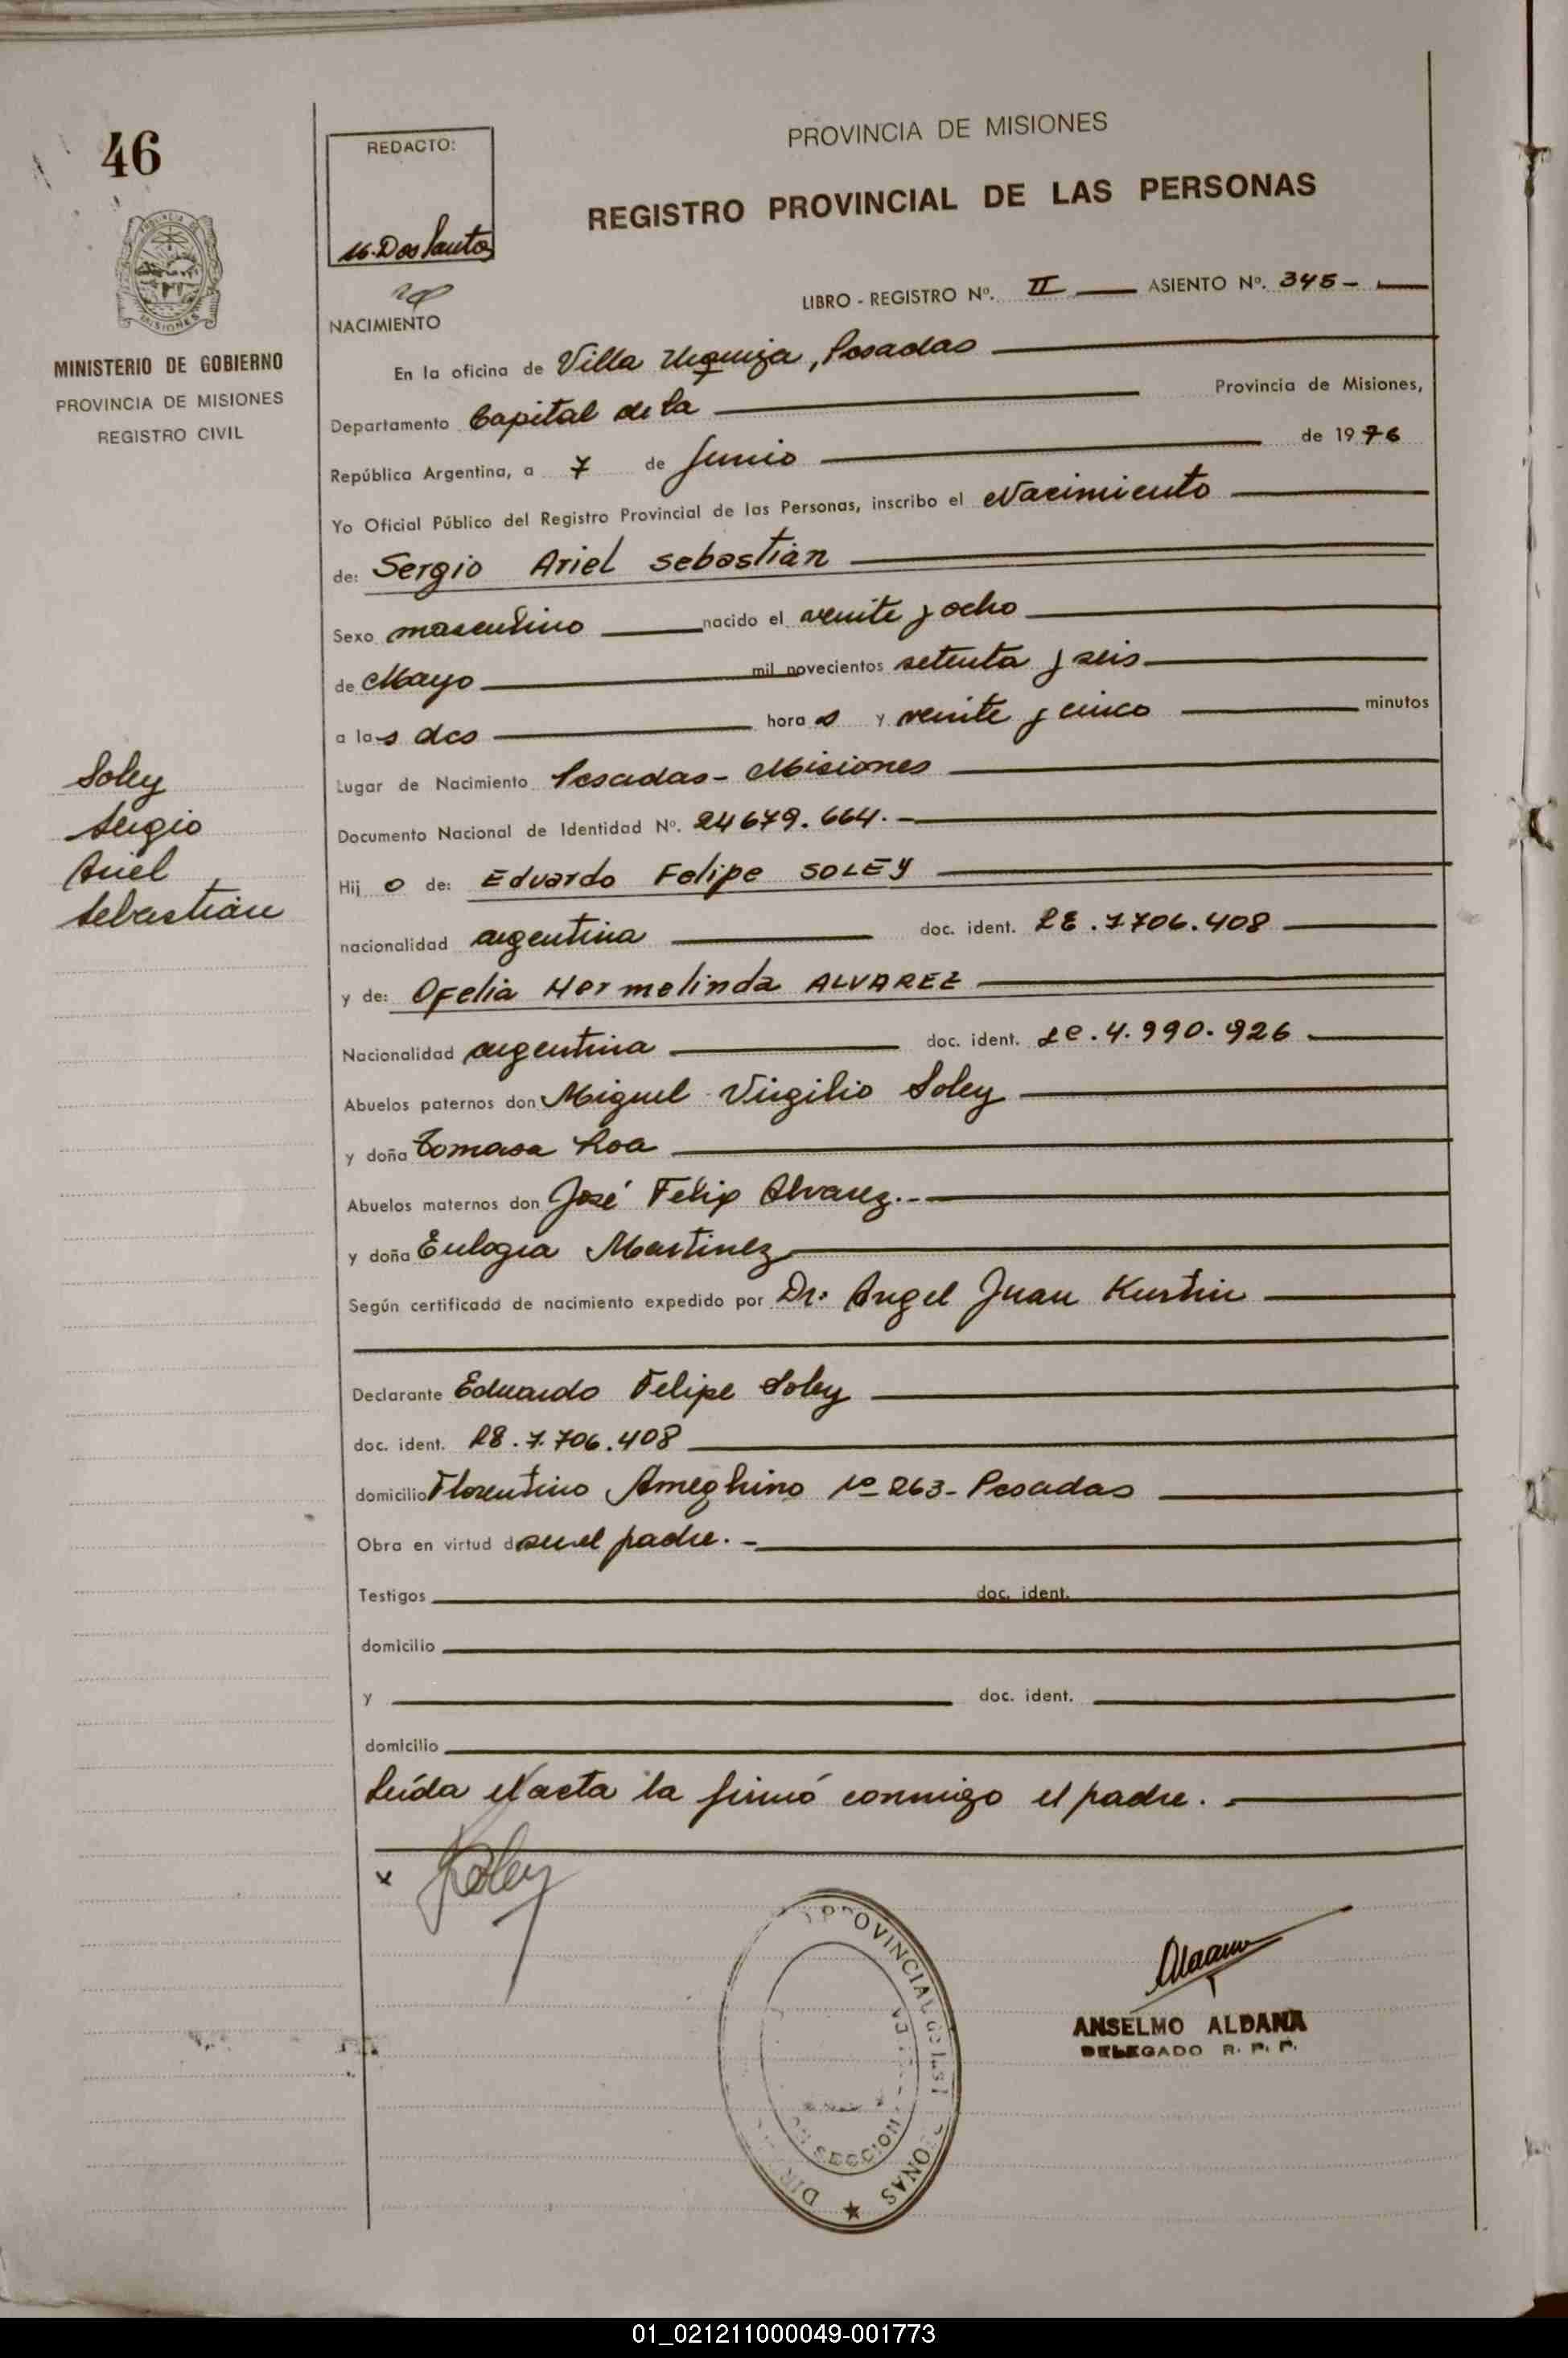 46
REDACTO:
M. Dos Santos
PROVINCIA DE MISIONES
REGISTRO PROVINCIAL DE LAS PERSONAS
LIBRO - REGISTRO Nº. II ASIENTO Nº. 345-
NACIMIENTO
MINISTERIO DE GOBIERNO
PROVINCIA DE MISIONES
REGISTRO CIVIL
En la oficina de Villa Urquiza, Posadas
Departamento Capital de la Provincia de Misiones,
República Argentina, a 7 de Junio de 1976
Yo Oficial Público del Registro Provincial de las Personas, inscribo el Nacimiento
de: Sergio Ariel Sebastián
Sexo masculino nacido el veinte y ocho
de Mayo mil novecientos setenta y seis
a las dos horas y veinte y cinco minutos
Soley
Sergio
Ariel
Sebastián
Lugar de Nacimiento Posadas - Misiones
Documento Nacional de Identidad Nº. 24679.664.-
Hijo de: Eduardo Felipe SOLEY
nacionalidad argentina doc. ident. LE.7.706.408
y de: Ofelia Hermelinda ALVAREZ
Nacionalidad argentina doc. ident. LC.4.990.926
Abuelos paternos don Miguel Virgilio Soley
y doña Tomasa Roa
Abuelos maternos don José Felix Alvarez.-
y doña Eulogia Martinez
Según certificado de nacimiento expedido por Dr. Angel Juan
Declarante Eduardo Felipe Soley
doc. ident. LE.7.706.408
domicilio Florentino Ameghino Nº 263- Posadas
Obra en virtud de ser el padre.-
Testigos doc. ident.
domicilio
y doc. ident.
domicilio
Leída el acta la firmó conmigo el padre.-
x Soley
PROVINCIAL DE LAS PERSONAS
SECCION
DIR
ANSELMO ALDANA
DELEGADO R. P. P.
01_021211000049-001773